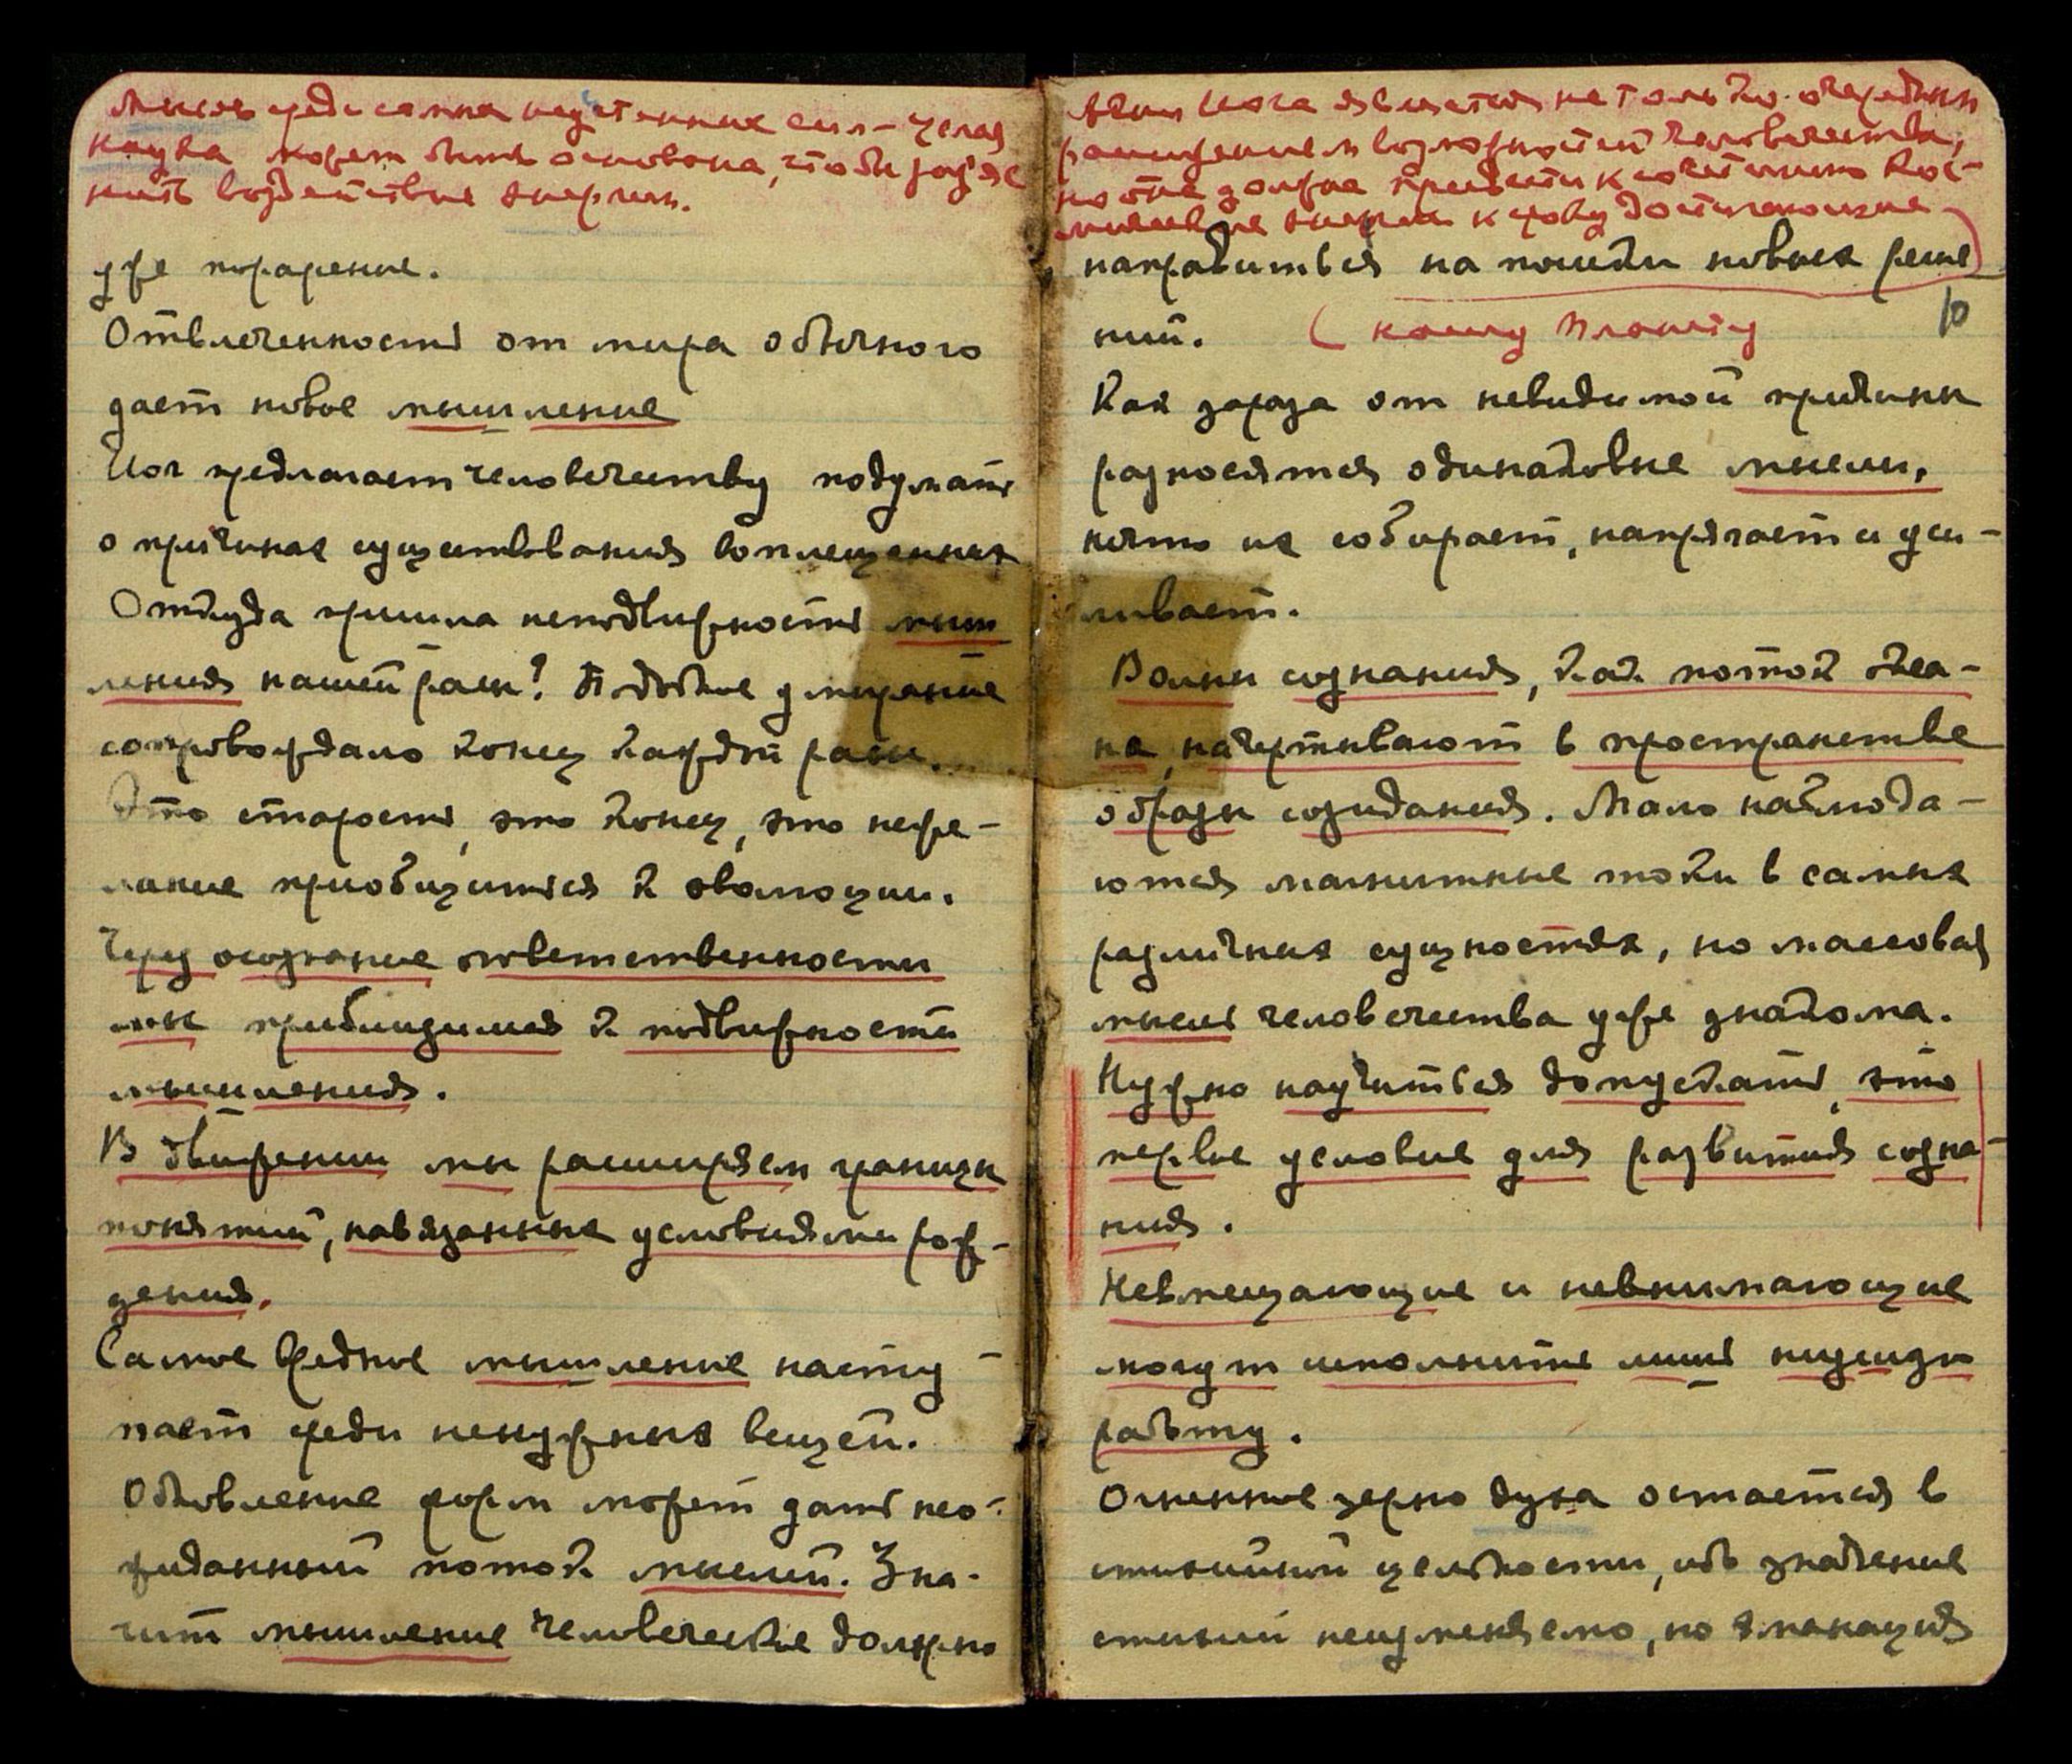 Мысль среди самых неучтенных сил – целая
наука может быть основана, чтобы разъяс
нить воздействие энергии.
уже поражение.
Отвлеченность от мира обычного
дает новое мышление
Иог предлагает человечеству подумать
о причинах существования воплощенных
Откуда пришла неподвижность мыш
ления нашей расы? Подобное умирание
сопровождало конец каждой расы.
Это старость, это конец, это неже-
лание приобщиться к эволюции.
Через осознание ответственности
мы приблизимся к подвижности
мышления.
В движении мы расширяем границы
понятий, навязанных условиями рож-
дения.
Самое вредное мышление насту-
пает среди ненужных вещей.
Обновление форм может дать нео-
жиданный поток мыслей. Зна-
чит мышление человеческое должно
Агни Иога является не только очередным
расширением возможностей человечества,
но она должна привести к сочетанию кос-
мические энергии к сроку достигающие
направиться на поиски новых реше
ний. (нашу планету
10
Как зараза от невидимой причины
разносятся одинаковые мысли,
нечто их собирает, напрягает и уси-
ливает.
Волны сознания, как поток океа-
на, начертывают в пространстве
образы созидания. Мало наблюда-
ются магнитные токи в самых
различных сущностях, но массовая
мысль человечества уже знакома.
Нужно научиться допускать, это
первое условие для развития созна-
ния.
Невмещающие и невнимающие
могут исполнить лишь низшую
работу.
Огненное зерно духа остается в
стихийной цельности, ибо значение
стихий неизменяемо, но эманация